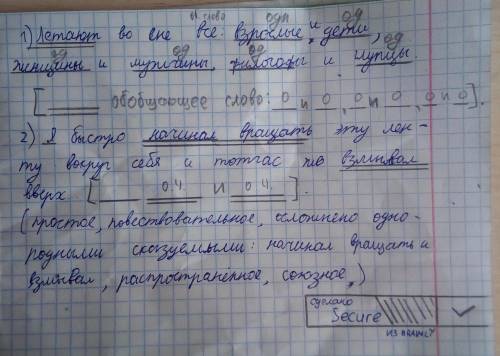 об. слово одп од
1) Летают во сне все: взрослые и дети,
од од од од
женщины и мужчины, философы и глупцы.
[ ____ обобщающее слово: О и О, О и О, О и О ].
2) Я быстро начинал вращать эту лен-
ту вокруг себя и тотчас же взмывал
вверх. [ ____ о.ч. и о.ч. ].
(простое, повествовательное, осложнено одно-
родными сказуемыми: начинал вращать и
взмывал, распространенное, союзное,)
сделано
Secure